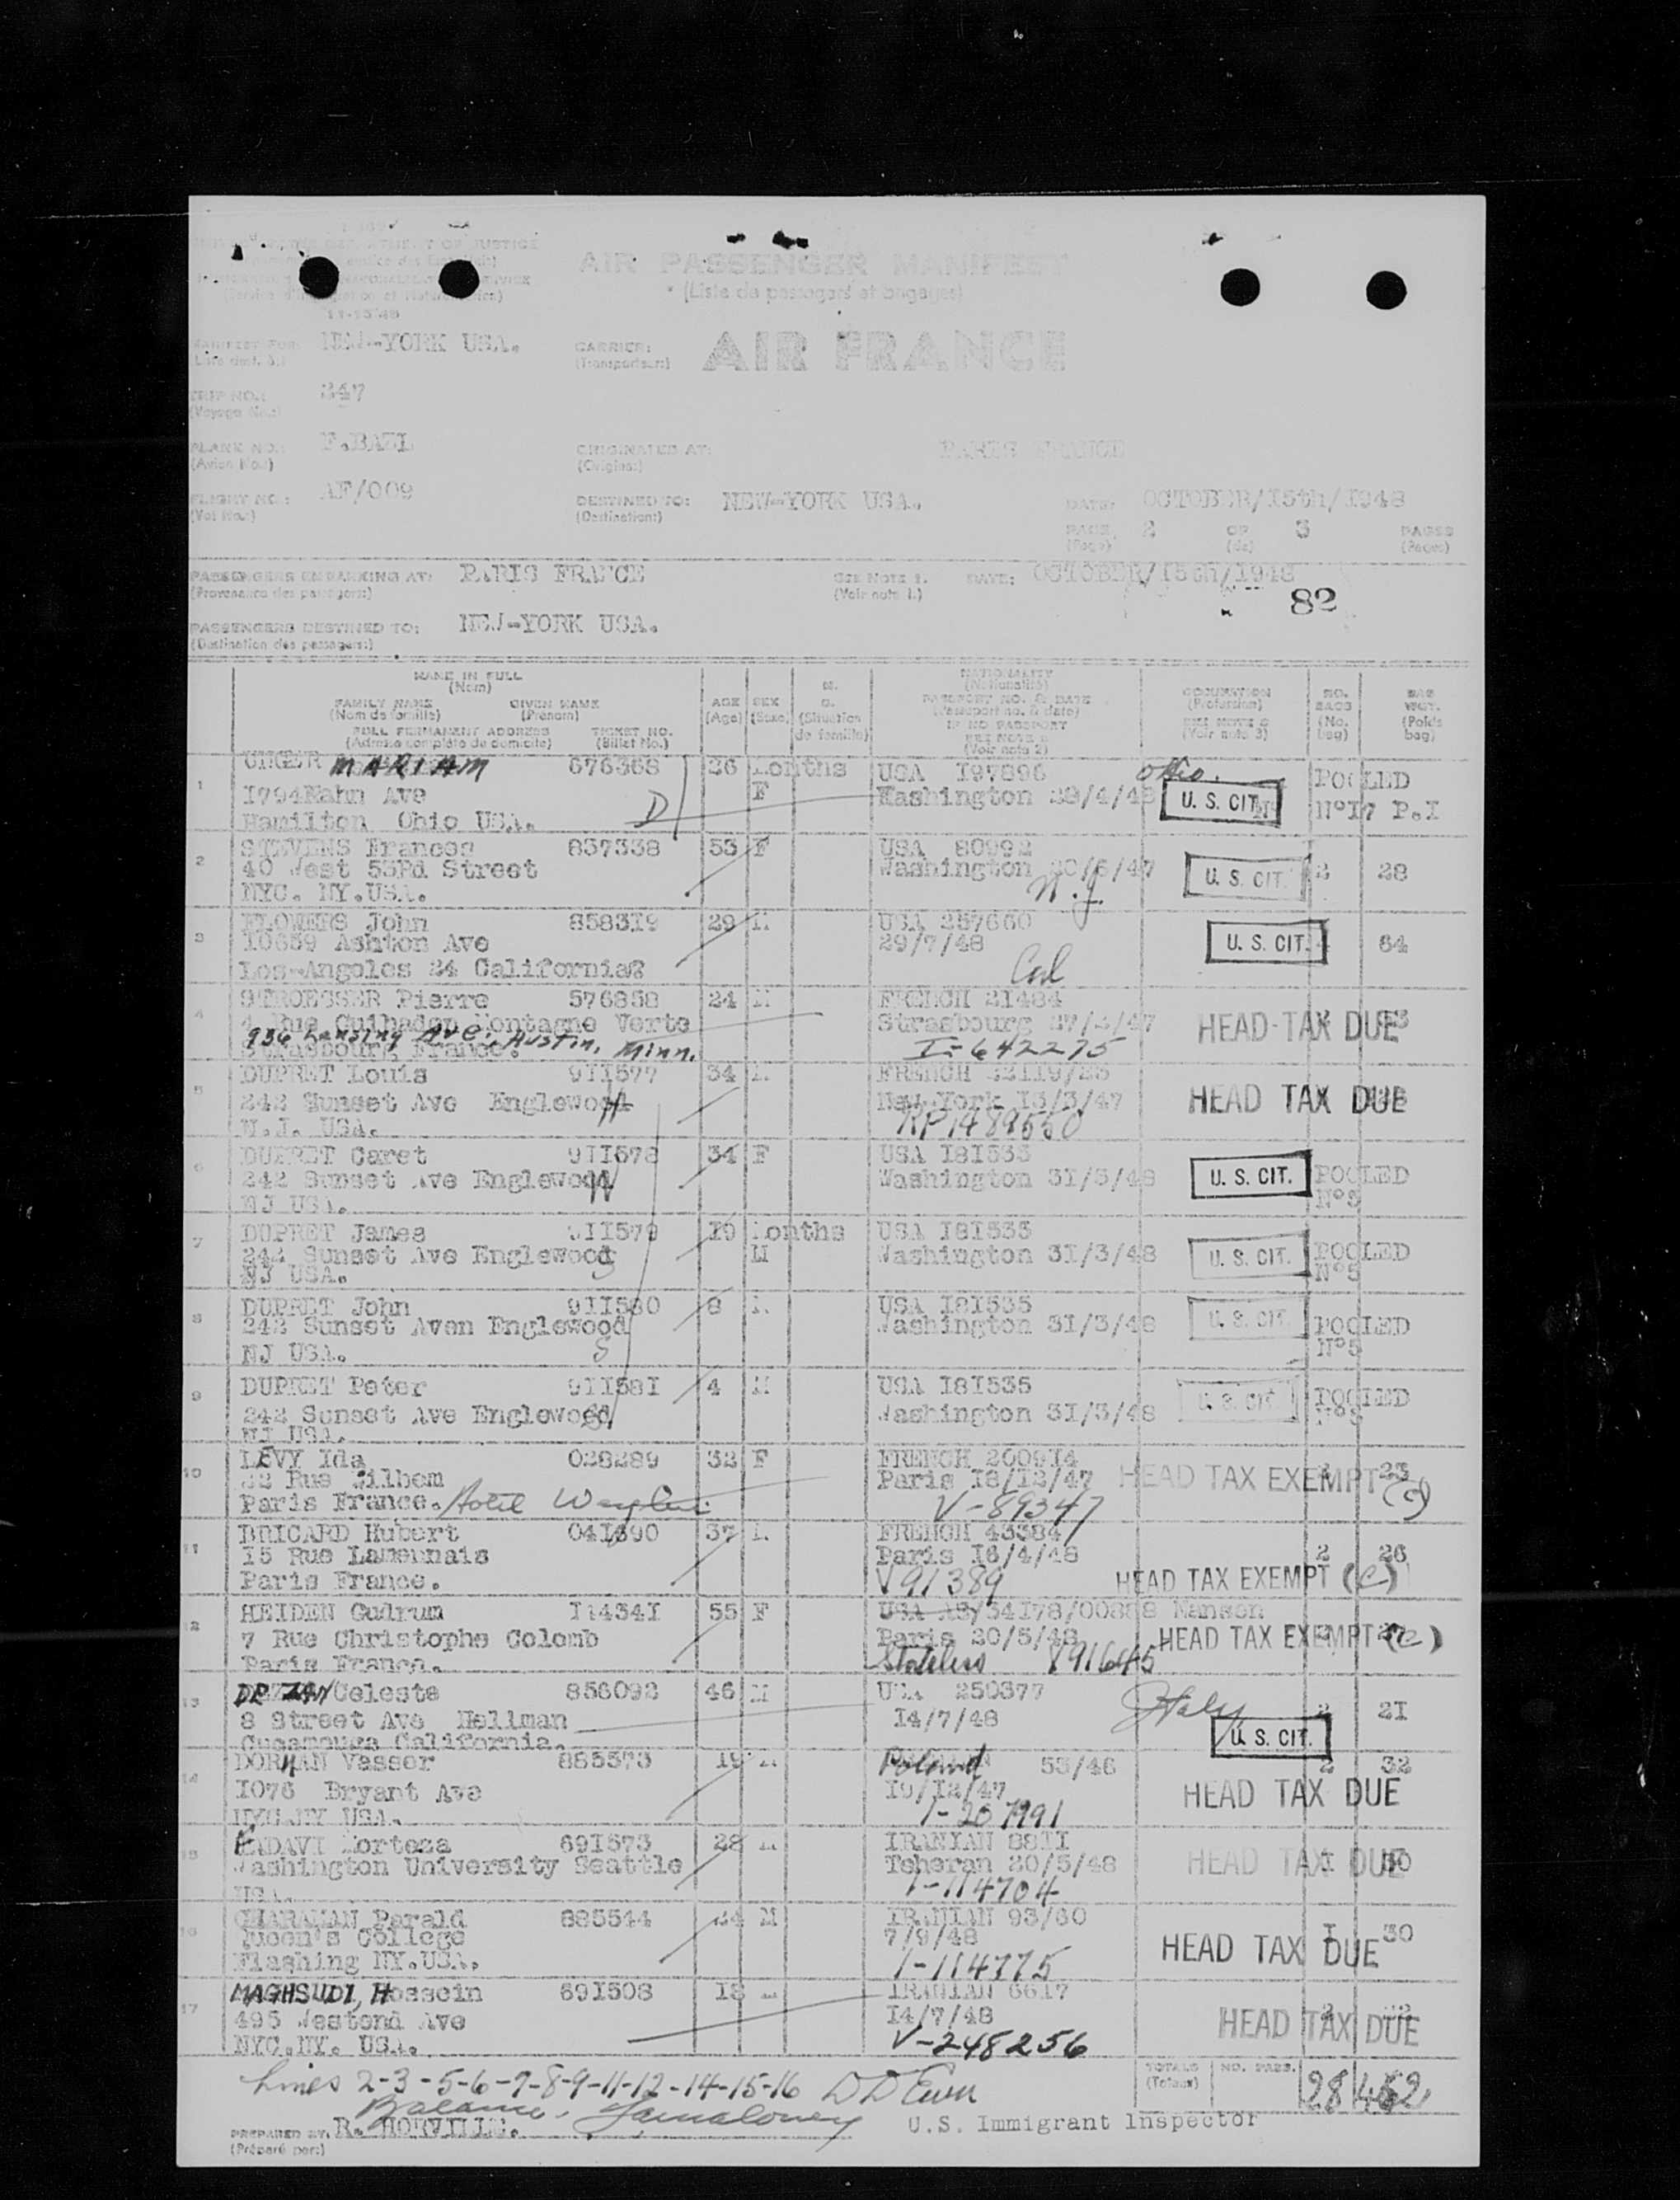 AIR PASSENGER MANIFEST
(Liste de passagers et bagages)
11-15 48
MANIFEST FOR: NEW-YORK USA. CARRIER: AIR FRANCE
(Transporteur:)
TRIP NO.: 347
(Voyage No.:)
PLANE NO.: F.BAZL ORIGINATED AT: PARIS FRANCE
(Avion No.:) (Origine:)
FLIGHT NO.: AF/009 DESTINED TO: NEW-YORK USA. DATE: OCTOBER/15th/1948
(Vol No.:) (Destination:)
PAGE 2 OF 3 PAGES
(Page) (de) (Pages)
PASSENGERS EMBARKING AT: PARIS FRANCE SEE NOTE 1. DATE: OCTOBER/15th/1948
(Provenance des passagers:) (Voir note 1.)
82
PASSENGERS DESTINED TO: NEW-YORK USA.
(Destination des passagers:)
NAME IN FULL
(Nom)
FAMILY NAME GIVEN NAME AGE SEX M. NATIONALITY OCCUPATION NO. BAGS BAG WGT.
(Nom de famille) (Prénom) (Age) (Sexe) (Situation de famille) (Nationalité) (Profession) (No. bag) (Poids bag)
FULL PERMANENT ADDRESS TICKET NO. PASSPORT NO. & DATE SEE NOTE
(Adresse complète de domicile) (Billet No.) (Passeport no. & date) (Voir note 3)
IF NO PASSPORT
SEE NOTE
(Voir note 2)
1 UNGER MARIAM 676368 26 Months USA 197896 Ohio. POOLED
1794 Hahn Ave F Washington 29/4/48 U. S. CIT. N°17 P.I
Hamilton Ohio USA. D
2 STEVENS Frances 857338 53 F USA 80992
40 West 53Rd Street Washington 20/6/47 U. S. CIT. 2 28
NYC. NY.USA. N.J.
3 FLOWERS John 858319 29 M USA 257660
10659 Ashton Ave 29/7/48 U. S. CIT. 64
Los-Angeles 24 California Cal
4 STROESSER Pierre 576858 24 M FRENCH 21484
4 Rue Montagne Verte Strasbourg 27/ /47 HEAD TAX DUE
936 Lansing Ave. Austin, Minn.
Strasbourg France. I-642275
5 DUPRET Louis 911577 34 M FRENCH
242 Sunset Ave Englewood New-York 13/3/47 HEAD TAX DUE
N.J. USA. RP1489550
6 DUPRET Caret 911578 34 F USA 181535
242 Sunset Ave Englewood Washington 31/3/48 U. S. CIT. POOLED
NJ USA. N°5
7 DUPRET James 911579 19 Months USA 181535
242 Sunset Ave Englewood M Washington 31/3/48 U. S. CIT. POOLED
NJ USA. N°5
8 DUPRET John 911580 8 M USA 181535
242 Sunset Aven Englewood Washington 31/3/48 U. S. CIT. POOLED
NJ USA. N°5
9 DUPRET Peter 911581 4 M USA 181535
242 Sunset Ave Englewood Washington 31/3/48 U. S. CIT. POOLED
NJ USA. N°5
10 LEVY Ida 028289 32 F FRENCH 200914
32 Rue Paris 18/12/47 HEAD TAX EXEMPT 23
Paris France. Hotel V-89347
11 BRICARD Hubert 041390 37 M FRENCH 43384
15 Rue Lamennais Paris 16/4/48 2 26
Paris France. V91389 HEAD TAX EXEMPT (c)
12 HEIDEN Gudrum 114341 55 F USA 34178/00888 Nansen
7 Rue Christophe Colomb Paris 20/5/48 HEAD TAX EXEMPT (c)
Paris France. Stateless V91645
13 Celeste 856092 46 M USA 250377 Italy 2 21
8 Street Ave Hellman 14/7/48 U. S. CIT.
Cucamouga California.
14 DORMAN Vasser 885573 19 M Poland 53/46 2 32
1076 Bryant Ave 19/12/47 HEAD TAX DUE
NYC.NY USA. I-207991
15 Morteza 691573 28 M IRANIAN 8811
Washington University Seattle Teheran 20/5/48 HEAD TAX DUE
USA. I-114704
16 Parald 885544 24 M IRANIAN 93/60 I 30
Queen's College 7/9/48 HEAD TAX DUE
Flashing NY.USA. I-114775
17 MAGHSUDI, Hossein 691508 18 M IRANIAN 6617
495 Westend Ave 14/7/48 HEAD TAX DUE
NYC.NY. USA. V-248256
TOTALS NO. PASS. 28 452
(Totaux)
Lines 2-3-5-6-7-8-9-11-12-14-15-16 D D Ewn
Balance -
PREPARED BY. R. HORVILLE. U.S. Immigrant Inspector
(Préparé par:)